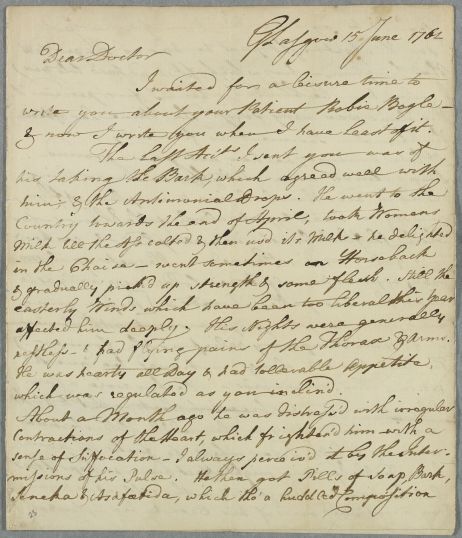 Glasgow 15 June 1762
Dear Doctor
I waited for a leisure time to
write you about your Patient Robie Bogle —
& now I write you when I have least of it.
The last Acct. I sent you was of
his taking the Bark, which agreed well with
him, & the Antimonial Drops. He went to the
Country towards the end of April, took Womans
Milk till the Ass calfed & then usd its Milk — he delighted
in the Chaise — went sometimes on Horseback
& gradually pickd up strength & some flesh. Still the
easterly Winds which have been too liberal this Year
affected him deeply. His Nights were generally
restless — had flying pains of the Thorax & Arms.
He was hearty all Day & had tollerable Appetite,
which was regulated as you inclind.
About a Month ago he was distressd with irregular
Contractions of the Heart, which frightend him with a
sense of Suffocation — I always perceivd it by the Inter-
missions of his Pulse. He then got Pills of Soap, Bark,
Seneka & Asafœtida, which tho' a huddled Composition